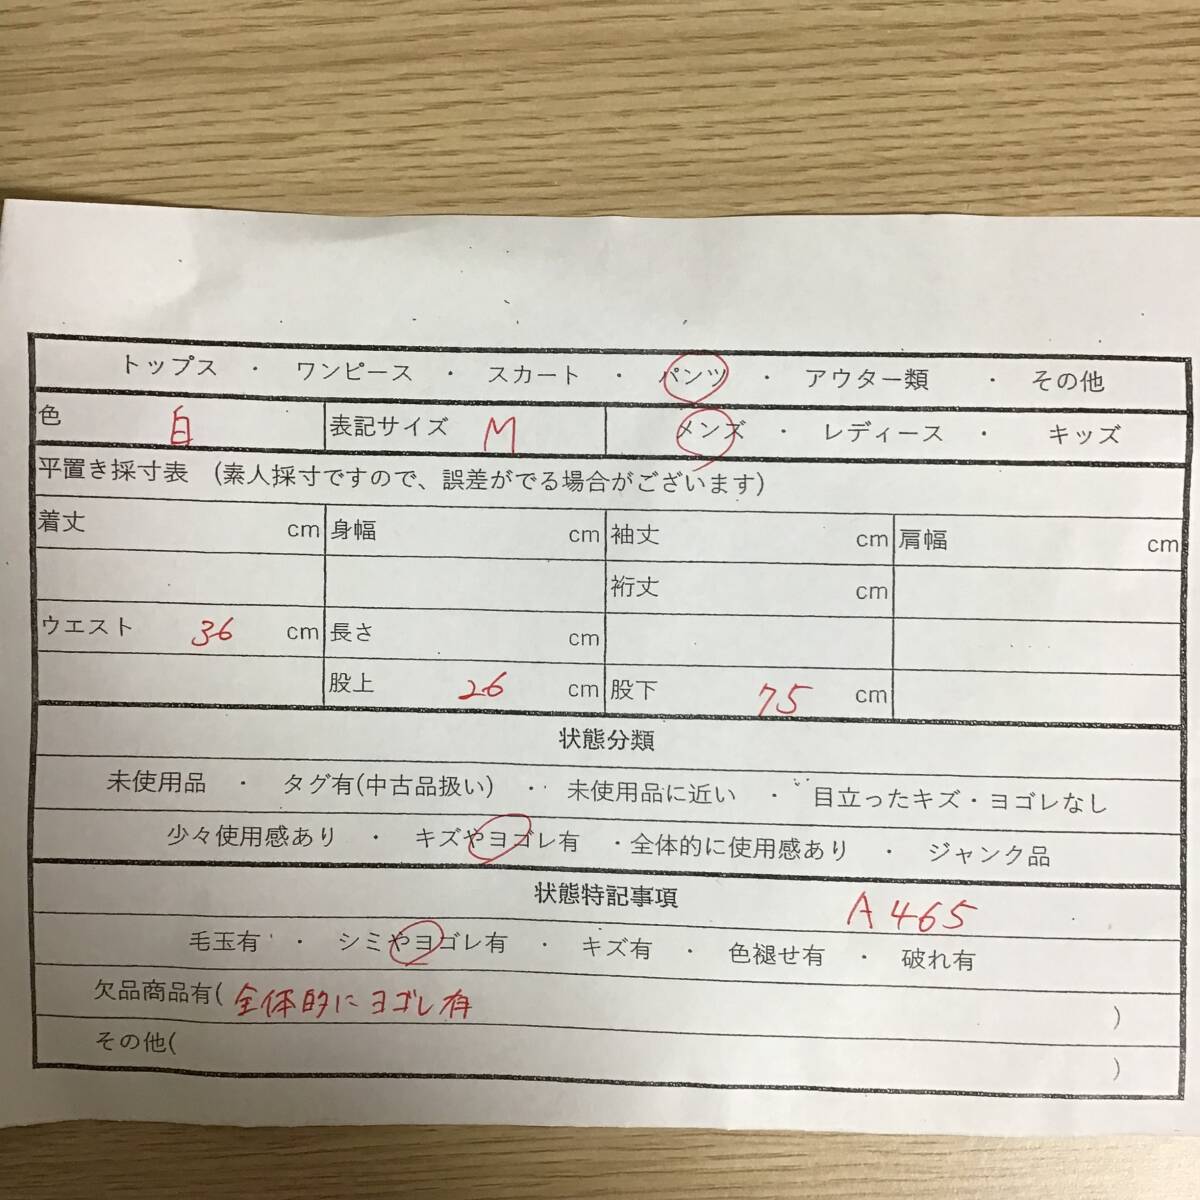 トップス ・ ワンピース ・ スカート ・ パンツ ・ アウター類 ・ その他
色 白 表記サイズ M メンズ ・ レディース ・ キッズ
平置き採寸表 (素人採寸ですので、誤差がでる場合がございます)
着丈 cm 身幅 cm 袖丈 cm 肩幅 cm
裄丈 cm
ウエスト 36 cm 長さ cm
股上 26 cm 股下 75 cm
状態分類
未使用品 ・ タグ有(中古品扱い) ・ 未使用品に近い ・ 目立ったキズ・ヨゴレなし
少々使用感あり ・ キズやヨゴレ有 ・全体的に使用感あり ・ ジャンク品
状態特記事項 A465
毛玉有 ・ シミやヨゴレ有 ・ キズ有 ・ 色褪せ有 ・ 破れ有
欠品商品有( 全体的にヨゴレ有 )
その他( )